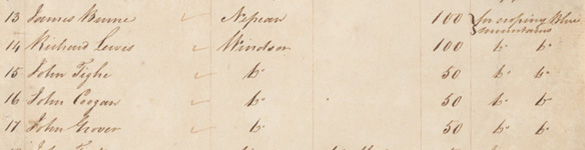 13 James Burne ✓ Nepean 100 } for croping Blue mountains
14 Richard Lewes ✓ Windsor 100 Do Do
15 John Tighe ✓ Do 50 Do Do
16 John Coogan ✓ Do 50 Do Do
17 John Grover ✓ Do 50 Do Do